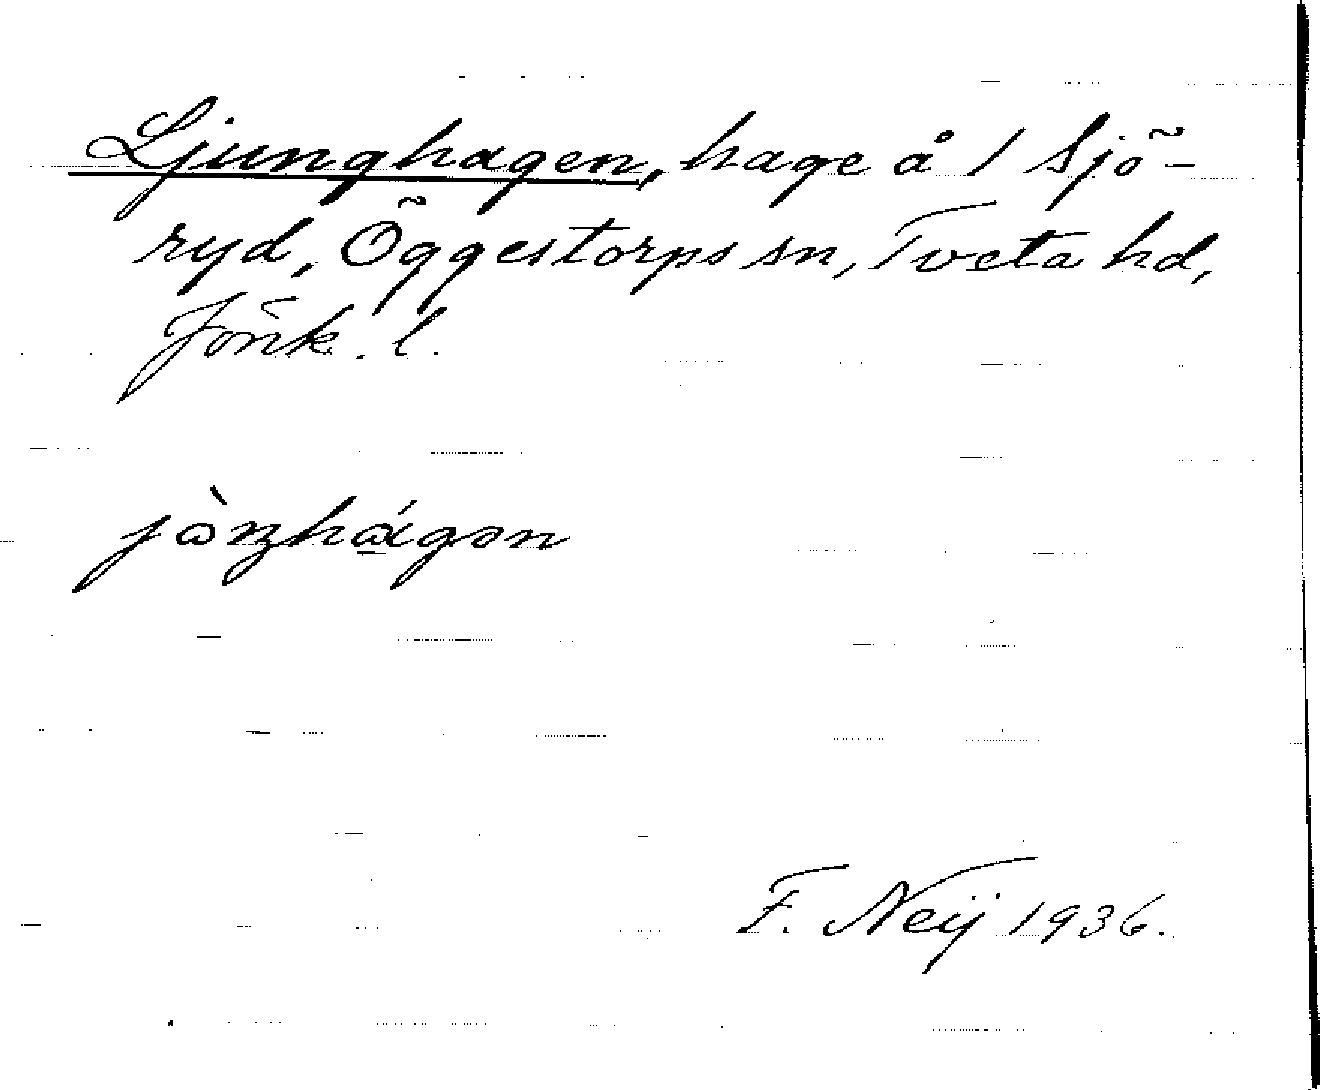 Ljunghagen, hage å 1 Sjö-
ryd, Öggestorps sn, Tveta hd,
Jönk. l.
F. Neij 1936.